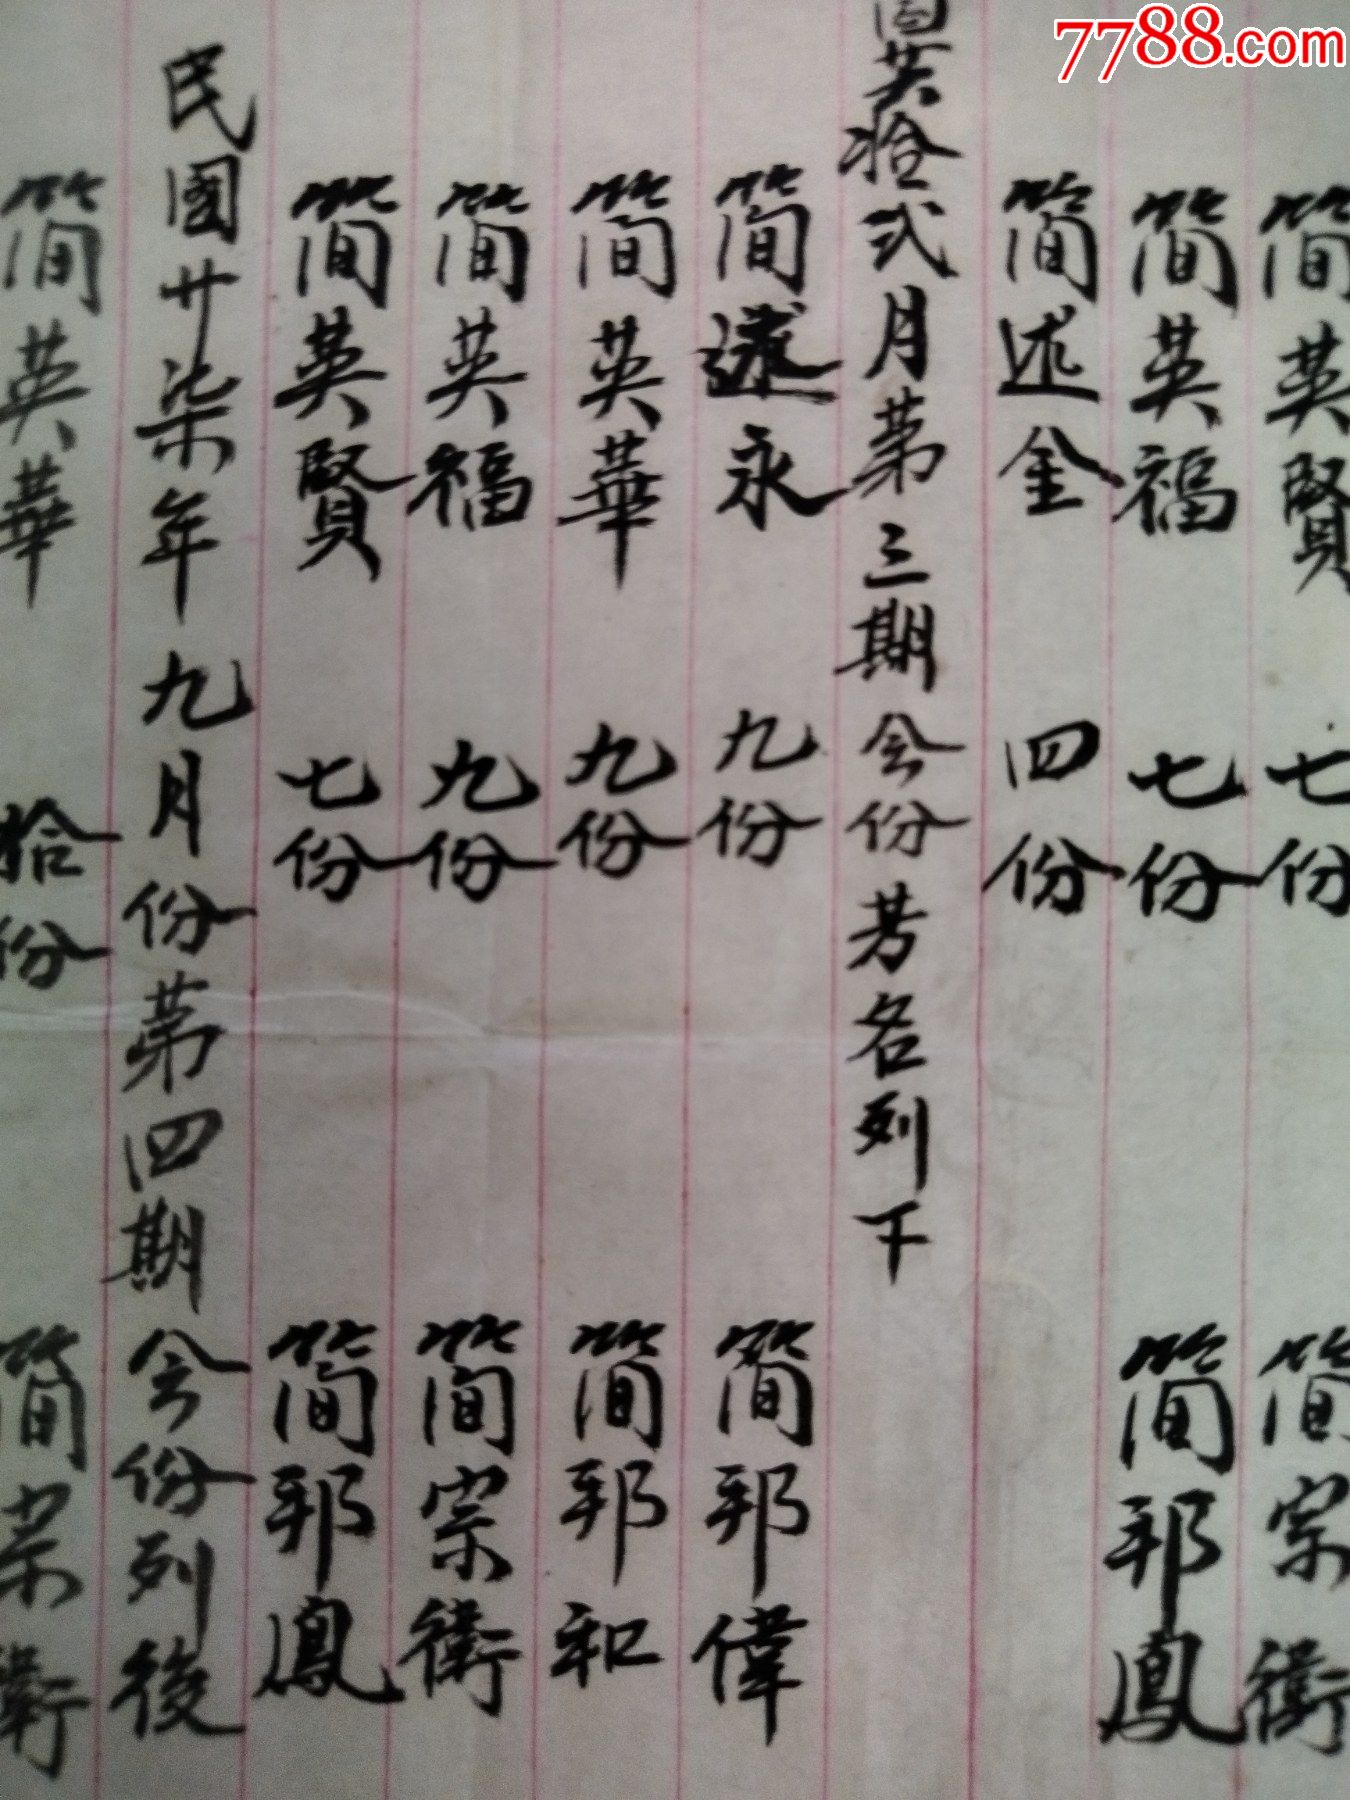 7788.com
簡英賢 七份 簡宗衛
簡英福 七份 簡邦鳳
簡述金 四份
英拾弍月苐三期会份芳名列下
簡遠永 九份 簡邦偉
簡英華 九份 簡邦和
簡英福 九份 簡宗衛
簡英賢 七份 簡邦鳳
民國廿柒年九月份苐四期会份列後
簡英華 拾份 簡宗衛